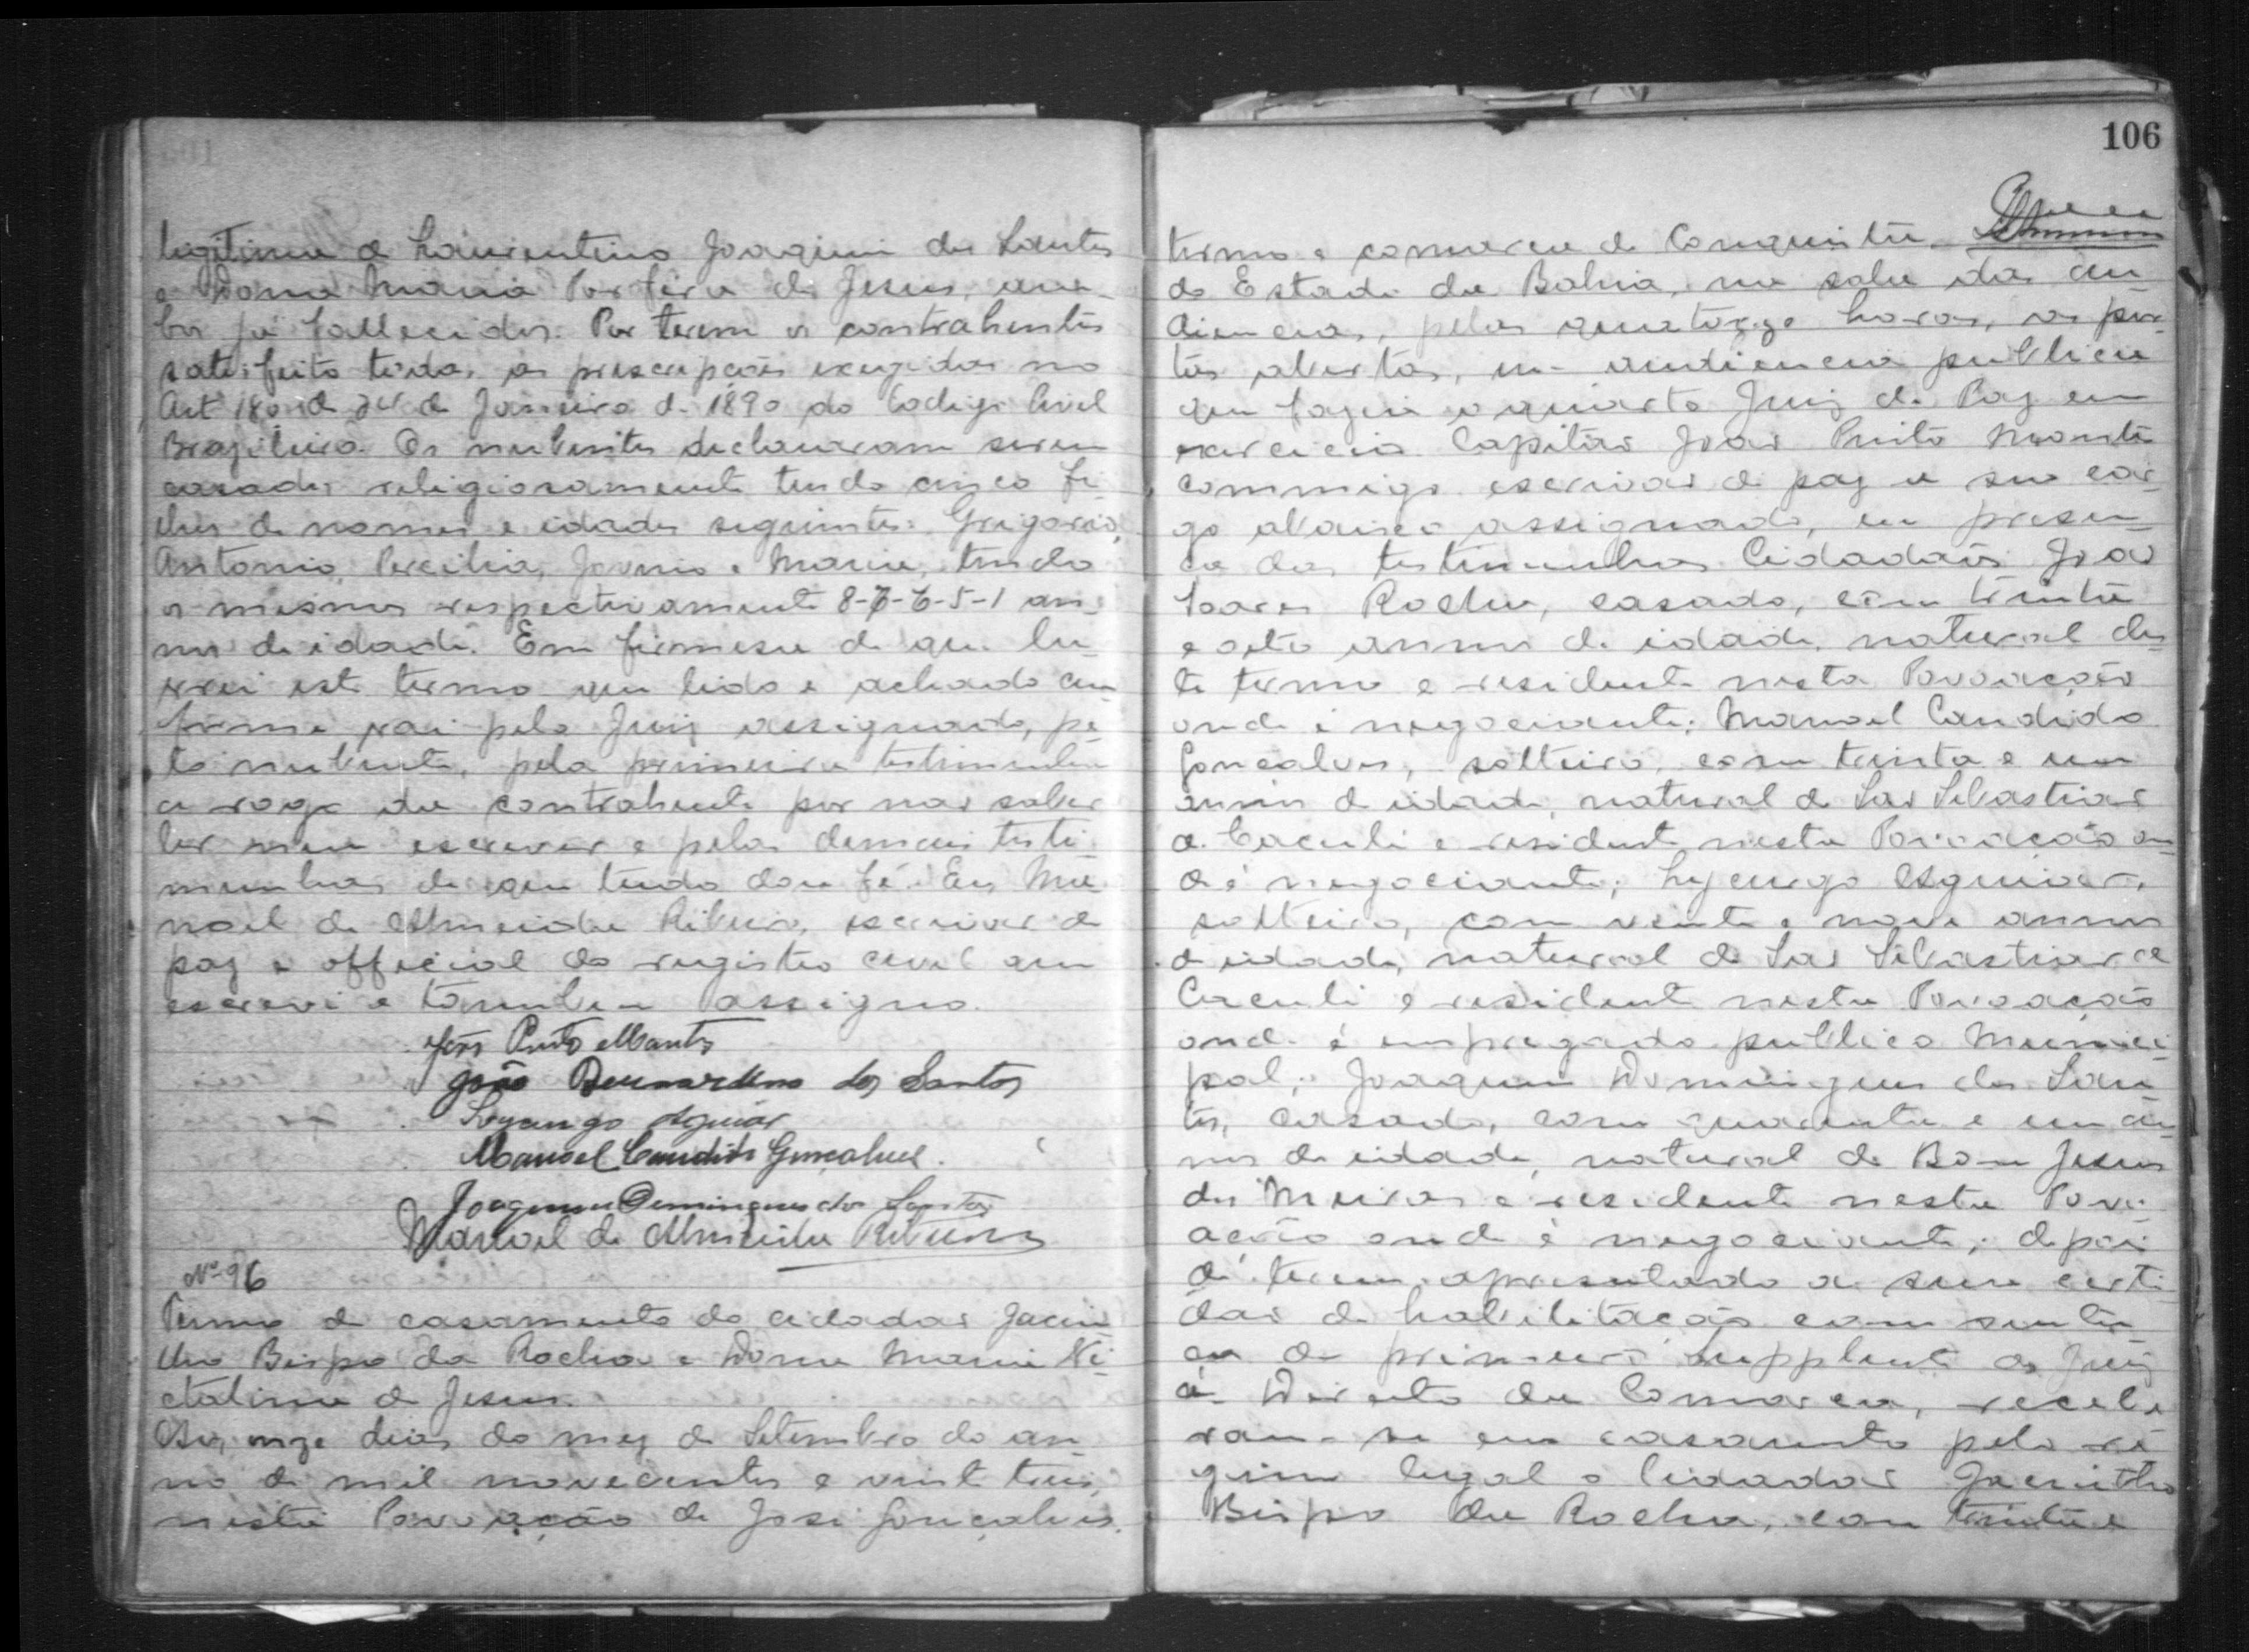 legitima de Laurentino Joaquim dos Santos
e Dona Maria Porfira de Jesus, am-
bos já fallecidos. Por terem os contrahentes
satisfeito todas as prescripções exegidas no
Art 180 de 24 de Janeiro de 1890 do Codigo Civel
Brazileiro. Os nubentes declararam serem
casados religiosamente tendo cinco fi-
lhos de nomes e idades seguintes: Grigorio,
Antonio, Percilia, Jovino e Maria, tendo
os mesmos respectivamente 8-7-6-5-1 an-
nos de idade. Em firmesa de que la-
vrei este termo que lido e achado con
forme vai pelo Juiz assignado, pe-
lo nubente, pela primeira testimunha
a rogo da contrahente por não saber
ler nem escrever e pelas demais teste
munhas de que tudo dou fé. Eu, Ma
noel de Almeida Ribeiro, escrivão de
paz e official do registro civel que
escrevi e tambem assigno.
João Pinto Montes
João Bernardino dos Santos
Lycurgo Aguiar
Manoel Candido Gonçalves.
Joaquim Domingues dos Santos
Manoel de Almeida Ribeiro
Nº 96
Termo de casamento do cidadão Jacin
tho Bispo da Rocha e Dona Maria Vi-
ctalina de Jesus.
Aos onze dias do mez de Setembro do an-
no de mil novecentos e vinte tres,
nesta Povoação de José Gonçalves,
106
termo e comarca de Conquista
do Estado da Bahia, na sala das au
diencias, pelas quatorze horas, as por
tas abertas, em audiencia publica
que fazia o quarto Juiz de Paz em
exercicio Capitão João Pinto Montes
commigo escrivão de paz e seu car-
go abaixo assignado, em presen-
ça das testimunhas Cidadãos João
Soares Rocha, casado, com trinta
e oito annos de idade, natural des
te termo e residente nesta Povoação
onde é negociante; Manoel Candido
Gonçalves, solteiro, com trinta e um
annos de idade, natural de São Sebastião
de Caculé e residente nesta Povoação on-
de é negociante; Lycurgo Aguiar,
solteiro, com vinte e nove annos
de idade, natural de São Sebastião de
Caculé e residente nesta Povoação
onde é empregado publico Munici-
pal; Joaquim Domingues dos San
tos, casado, com quarenta e um an-
nos de idade, natural de Bom Jesus
dos Meiras e residente nesta Povo-
ação onde é negociante; depois
de terem apresentado a sua certi-
dão de habilitação com senten-
ça do primeiro supplente do Juiz
de Direito da Comarca, recebe
ram-se em casamento pelo re
gime legal o Cidadão Jacintho
Bispo da Rocha, com trinta e